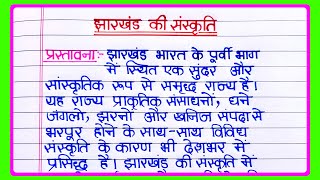 झारखंड की संस्कृति
प्रस्तावना:- झारखंड भारत के पूर्वी भाग
में स्थित एक सुंदर और
सांस्कृतिक रूप से समृद्ध राज्य है।
यह राज्य प्राकृतिक संसाधनों, घने
जंगलो, झरनों और खनिज संपदा से
भरपूर होने के साथ-साथ विविध
संस्कृति के कारण भी देशभर में
प्रसिद्ध है। झारखंड की संस्कृति में